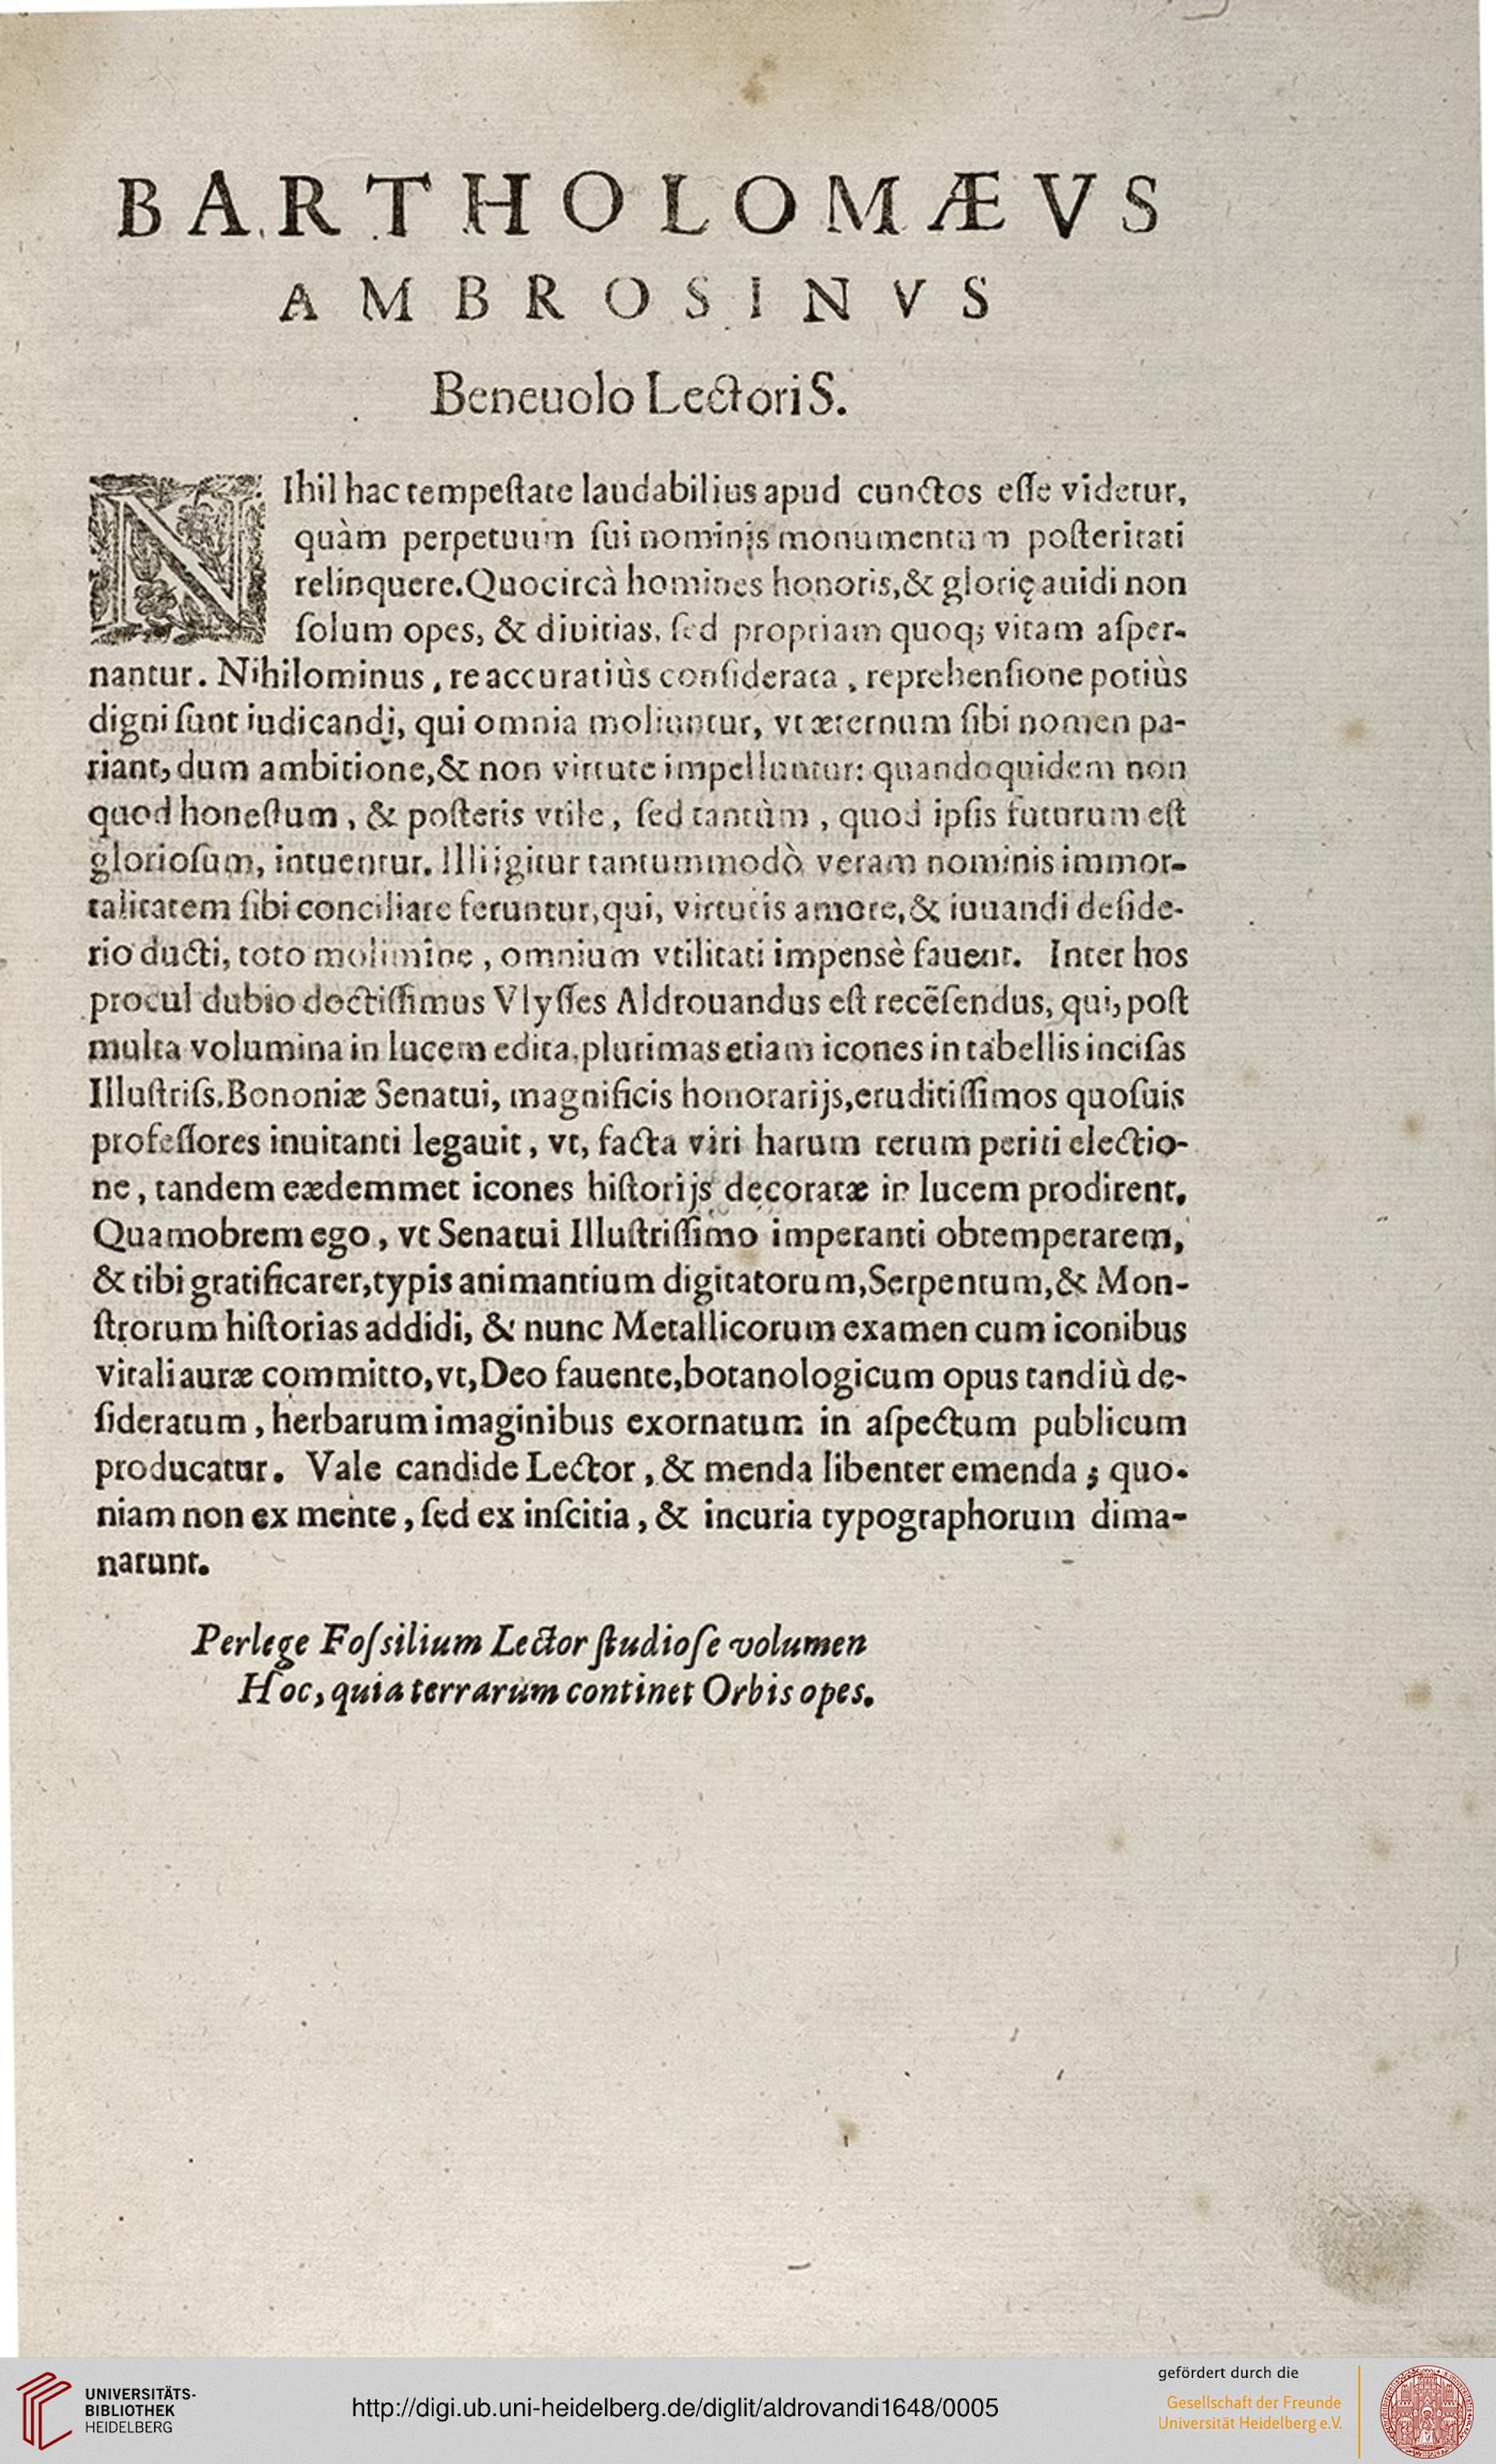 BARTHOLOMÆVS
AMBROSINVS
Beneuolo Lectori S.
NIhil hac tempeſtate laudabilius apud cunctos eſſe videtur,
quàm perpetuum ſui nominis monumentum poſteritati
relinquere. Quocircà homines honoris, & glorię auidi non
ſolum opes, & diuitias, ſed propriam quoq; vitam aſper-
nantur. Nihilominus, re accuratiùs conſiderata, reprehenſione potiùs
digni ſunt iudicandi, qui omnia moliuntur, vt æternum ſibi nomen pa-
riant, dum ambitione, & non virtute impelluntur: quandoquidem non
quod honeſtum, & poſteris vtile, ſed tantùm, quod ipſis futurum eſt
glorioſum, intuentur. Illi igitur tantummodò veram nominis immor-
talitatem ſibi conciliare feruntur, qui, virtutis amore, & iuuandi deſide-
rio ducti, toto molimine, omnium vtilitati impensè fauent. Inter hos
procul dubio doctiſſimus Vlyſſes Aldrouandus eſt recẽſendus, qui, poſt
multa volumina in lucem edita, plurimas etiam icones in tabellis inciſas
Illuſtriſs. Bononiæ Senatui, magnificis honorarijs, eruditiſſimos quoſuis
profeſſores inuitanti legauit, vt, facta viri harum rerum periti electio-
ne, tandem eædemmet icones hiſtorijs decoratæ in lucem prodirent.
Quamobrem ego, vt Senatui Illuſtriſſimo imperanti obtemperarem,
& tibi gratificarer, typis animantium digitatorum, Serpentum, & Mon-
ſtrorum hiſtorias addidi, & nunc Metallicorum examen cum iconibus
vitali auræ committo, vt, Deo fauente, botanologicum opus tandiù de-
ſideratum, herbarum imaginibus exornatum in aſpectum publicum
producatur. Vale candide Lector, & menda libenter emenda; quo-
niam non ex mente, ſed ex inſcitia, & incuria typographorum dima-
narunt.
Perlege Foſsilium Lector ſtudioſe volumen
Hoc, quia terrarum continet Orbis opes.
UNIVERSITÄTS-
BIBLIOTHEK
HEIDELBERG
http://digi.ub.uni-heidelberg.de/diglit/aldrovandi1648/0005
gefördert durch die
Gesellschaft der Freunde
Universität Heidelberg e.V.